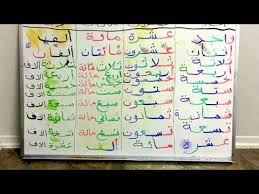 واحد عشرة مائة ألف
اثنان عشرون مائتان ألفان
ثلاثة ثلاثون ثلاث مائة ثلاثة الاف
أربعة أربعون أربع مائة أربعة الاف
خمسة خمسون خمس مائة خمسة الاف
ستة ستون ست مائة ستة الاف
سبعة سبعون سبع مائة سبعة الاف
ثمانية ثمانون ثمان مائة ثمانية الاف
تسعة تسعون تسع مائة تسعة الاف
عشرة مائة ألف عشرة الاف